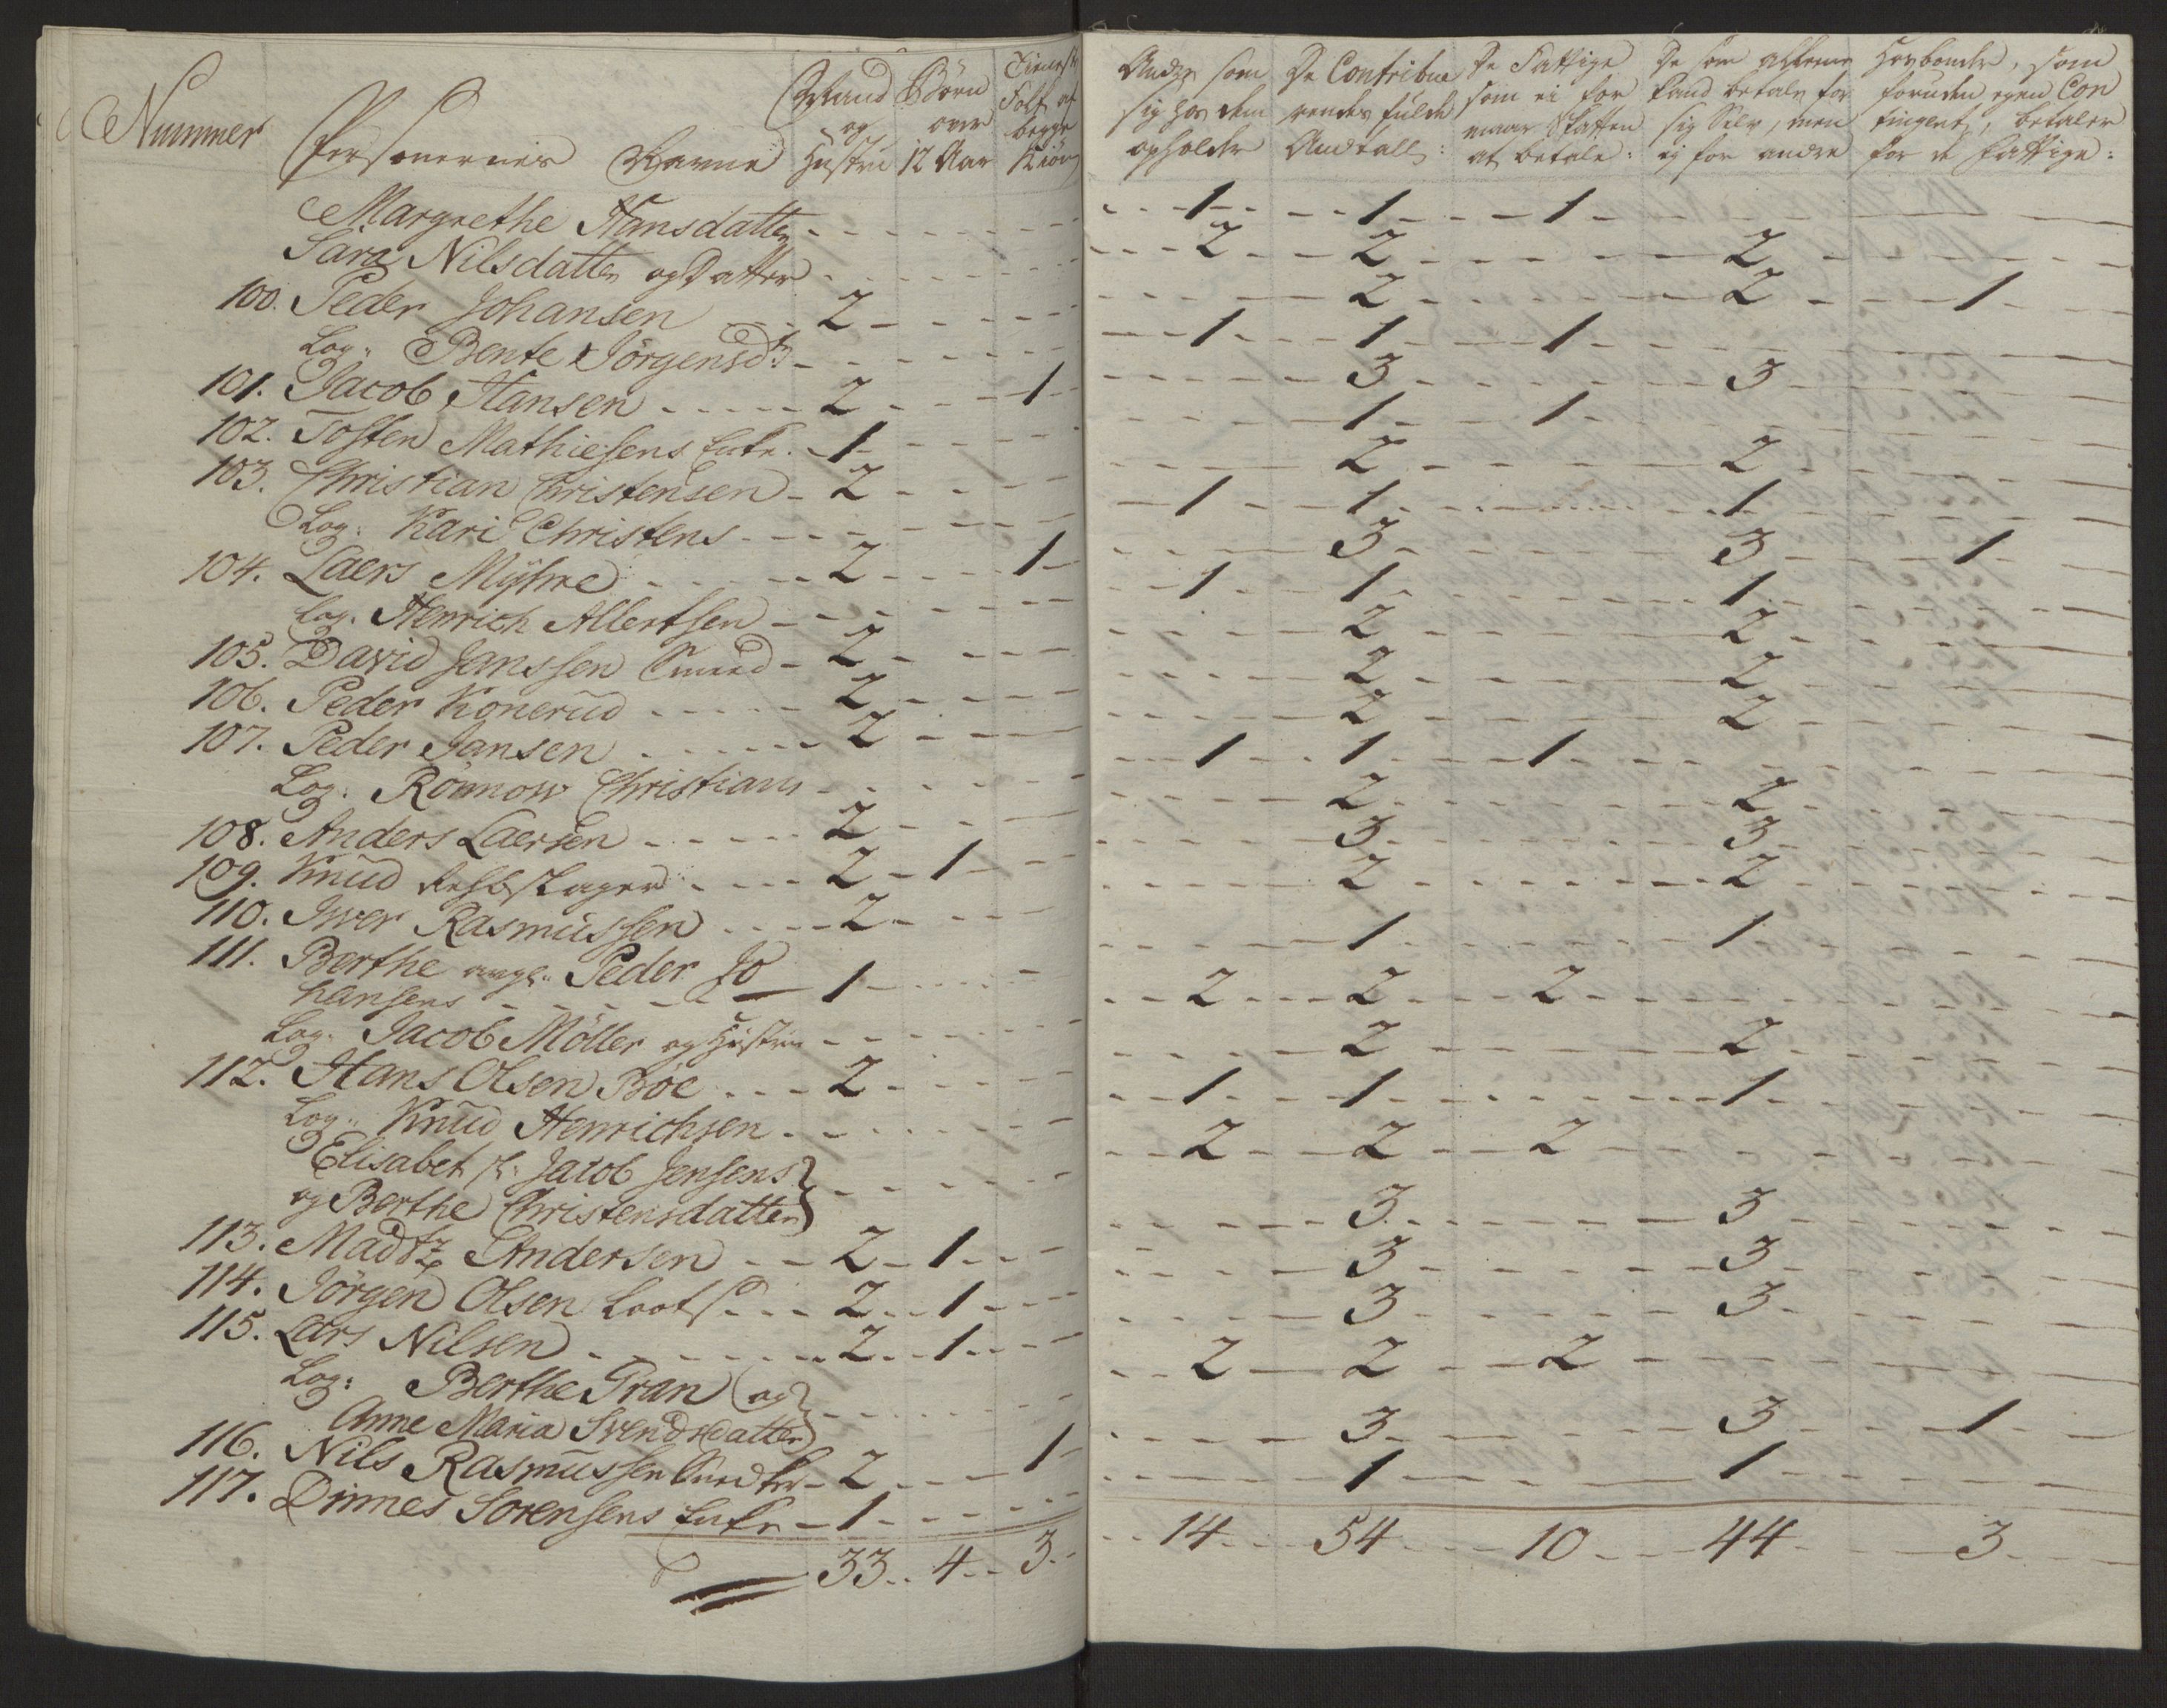 Nummer Personernes Navne Mand og Hustru Börn over 12 Aar Tieneste Folk af begge Kiön Andre som sig hos dem opholder De Contribuerendes fulde Andtall: De Fattige som ei formaar Skatten at betale: De som alleene kand betale for sig Selv, men ej for andre Hosbonder, som foruden egen Contingent, betaler for de fattige:
Margrethe Hansdatter - - - 1 - 1 - 1 -
Sara Nilsdatter og Datter - - - 2 - 2 - - 2 -
100. Peder Johansen - 2 - - - 2 - - 2 - 1
Log: Bente Jörgensd:r - - - 1 - 1 - 1 -
101. Jacob Hansen - 2 - - 1 - 3 - - 3 -
102. Tosten Mathiesens Enke. 1 - - - 1 - 1 -
103. Christian Christensen - 2 - - - 2 - - 2 -
Log: Kari Christens - - - 1 - 1 - - 1 -
104. Laers Myhre - 2 - - 1 - 3 - - 3 - 1
Log. Henrich Albertsen - - - 1 - 1 - - 1 -
105. David Janssen Smed - 2 - - - 2 - - 2 -
106. Peder Konerud - 2 - - - 2 - - 2 -
107. Peder Jansen - 2 - - - 2 - - 2 -
Log: Rönnow Christians - - - 1 - 1 - 1 -
108. Anders Laersen - 2 - - - 2 - - 2 -
109. Knud Rebslager - 2 - 1 - - 3 - - 3 -
110. Iver Rasmussen - 2 - - - 2 - - 2 -
111. Berthe Peder Jo
hansens - 1 - - - 1 - - 1 -
Log: Jacob Möller og Hustru - - - 2 - 2 - 2 -
112. Hans Olsen Böe - 2 - - - 2 - - 2 -
Log: Knud Henrichsen - - - 1 - 1 - - 1 -
Elisabet Jacob Jensens
og Berthe Christensdatter - - - 2 - 2 - 2 -
113. Madtz Andersen - 2 - 1 - - 3 - - 3 -
114. Jörgen Olsen Loots - 2 - 1 - - 3 - - 3 -
115. Lars Nilsen - 2 - 1 - - 3 - - 3 -
Log: Berthe Gran og
Anne Maria Svendsdatter - - - 2 - 2 - 2 -
116. Nils Rasmussen - 2 - - 1 - 3 - - 3 - 1
117. Dinnes Sorensens Enke - 1 - - - 1 - - 1 -
33 - 4 - 3 - 14 - 54 - 10 - 44 - 3